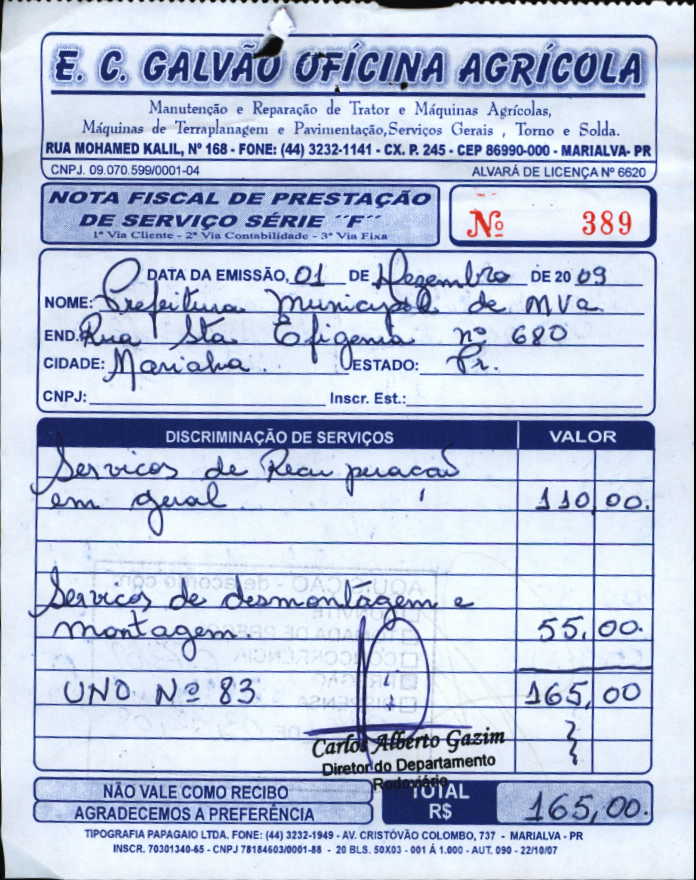 E. C. GALVÃO OFÍCINA AGRÍCOLA
Manutenção e Reparação de Trator e Máquinas Agrícolas,
Máquinas de Terraplanagem e Pavimentação,Serviços Gerais , Torno e Solda.
RUA MOHAMED KALIL, Nº 168 - FONE: (44) 3232-1141 - CX. P. 245 - CEP 86990-000 - MARIALVA- PR
CNPJ. 09.070.599/0001-04 ALVARÁ DE LICENÇA Nº 6620
NOTA FISCAL DE PRESTAÇÃO
DE SERVIÇO SÉRIE ´´F´´
1ª Via Cliente - 2ª Via Contabilidade - 3ª Via Fixa
Nº 389
DATA DA EMISSÃO, 01 DE Dezembro DE 20 09
NOME: Prefeitura Municipal de MVa
END. Rua Sta Efigenia nº 680
CIDADE: Marialva ESTADO: Pr.
CNPJ: Inscr. Est.:
DISCRIMINAÇÃO DE SERVIÇOS VALOR
Servicos de Recu peracao
em geral. 110,00.
Servicos de desmontagem e
montagem. 55,00.
UNO Nº 83 165,00
Carlos Alberto Gazim
Diretor do Departamento
Rodoviário
NÃO VALE COMO RECIBO
AGRADECEMOS A PREFERÊNCIA
TOTAL
R$ 165,00.
TIPOGRAFIA PAPAGAIO LTDA. FONE: (44) 3232-1949 - AV. CRISTÓVÃO COLOMBO, 737 - MARIALVA - PR
INSCR. 70301340-65 - CNPJ 78184603/0001-88 - 20 BLS. 50X03 - 001 Á 1.000 - AUT. 090 - 22/10/07